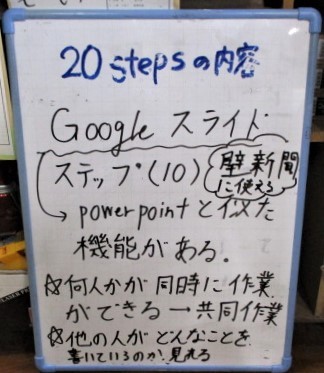 20 Stepsの内容
Google スライド
ステップ(10)
壁新聞
に使える
powerpointと似た
機能がある。
☆何人かが同時に作業
ができる→共同作業
☆他の人がどんなことを
書いているのか、見れる